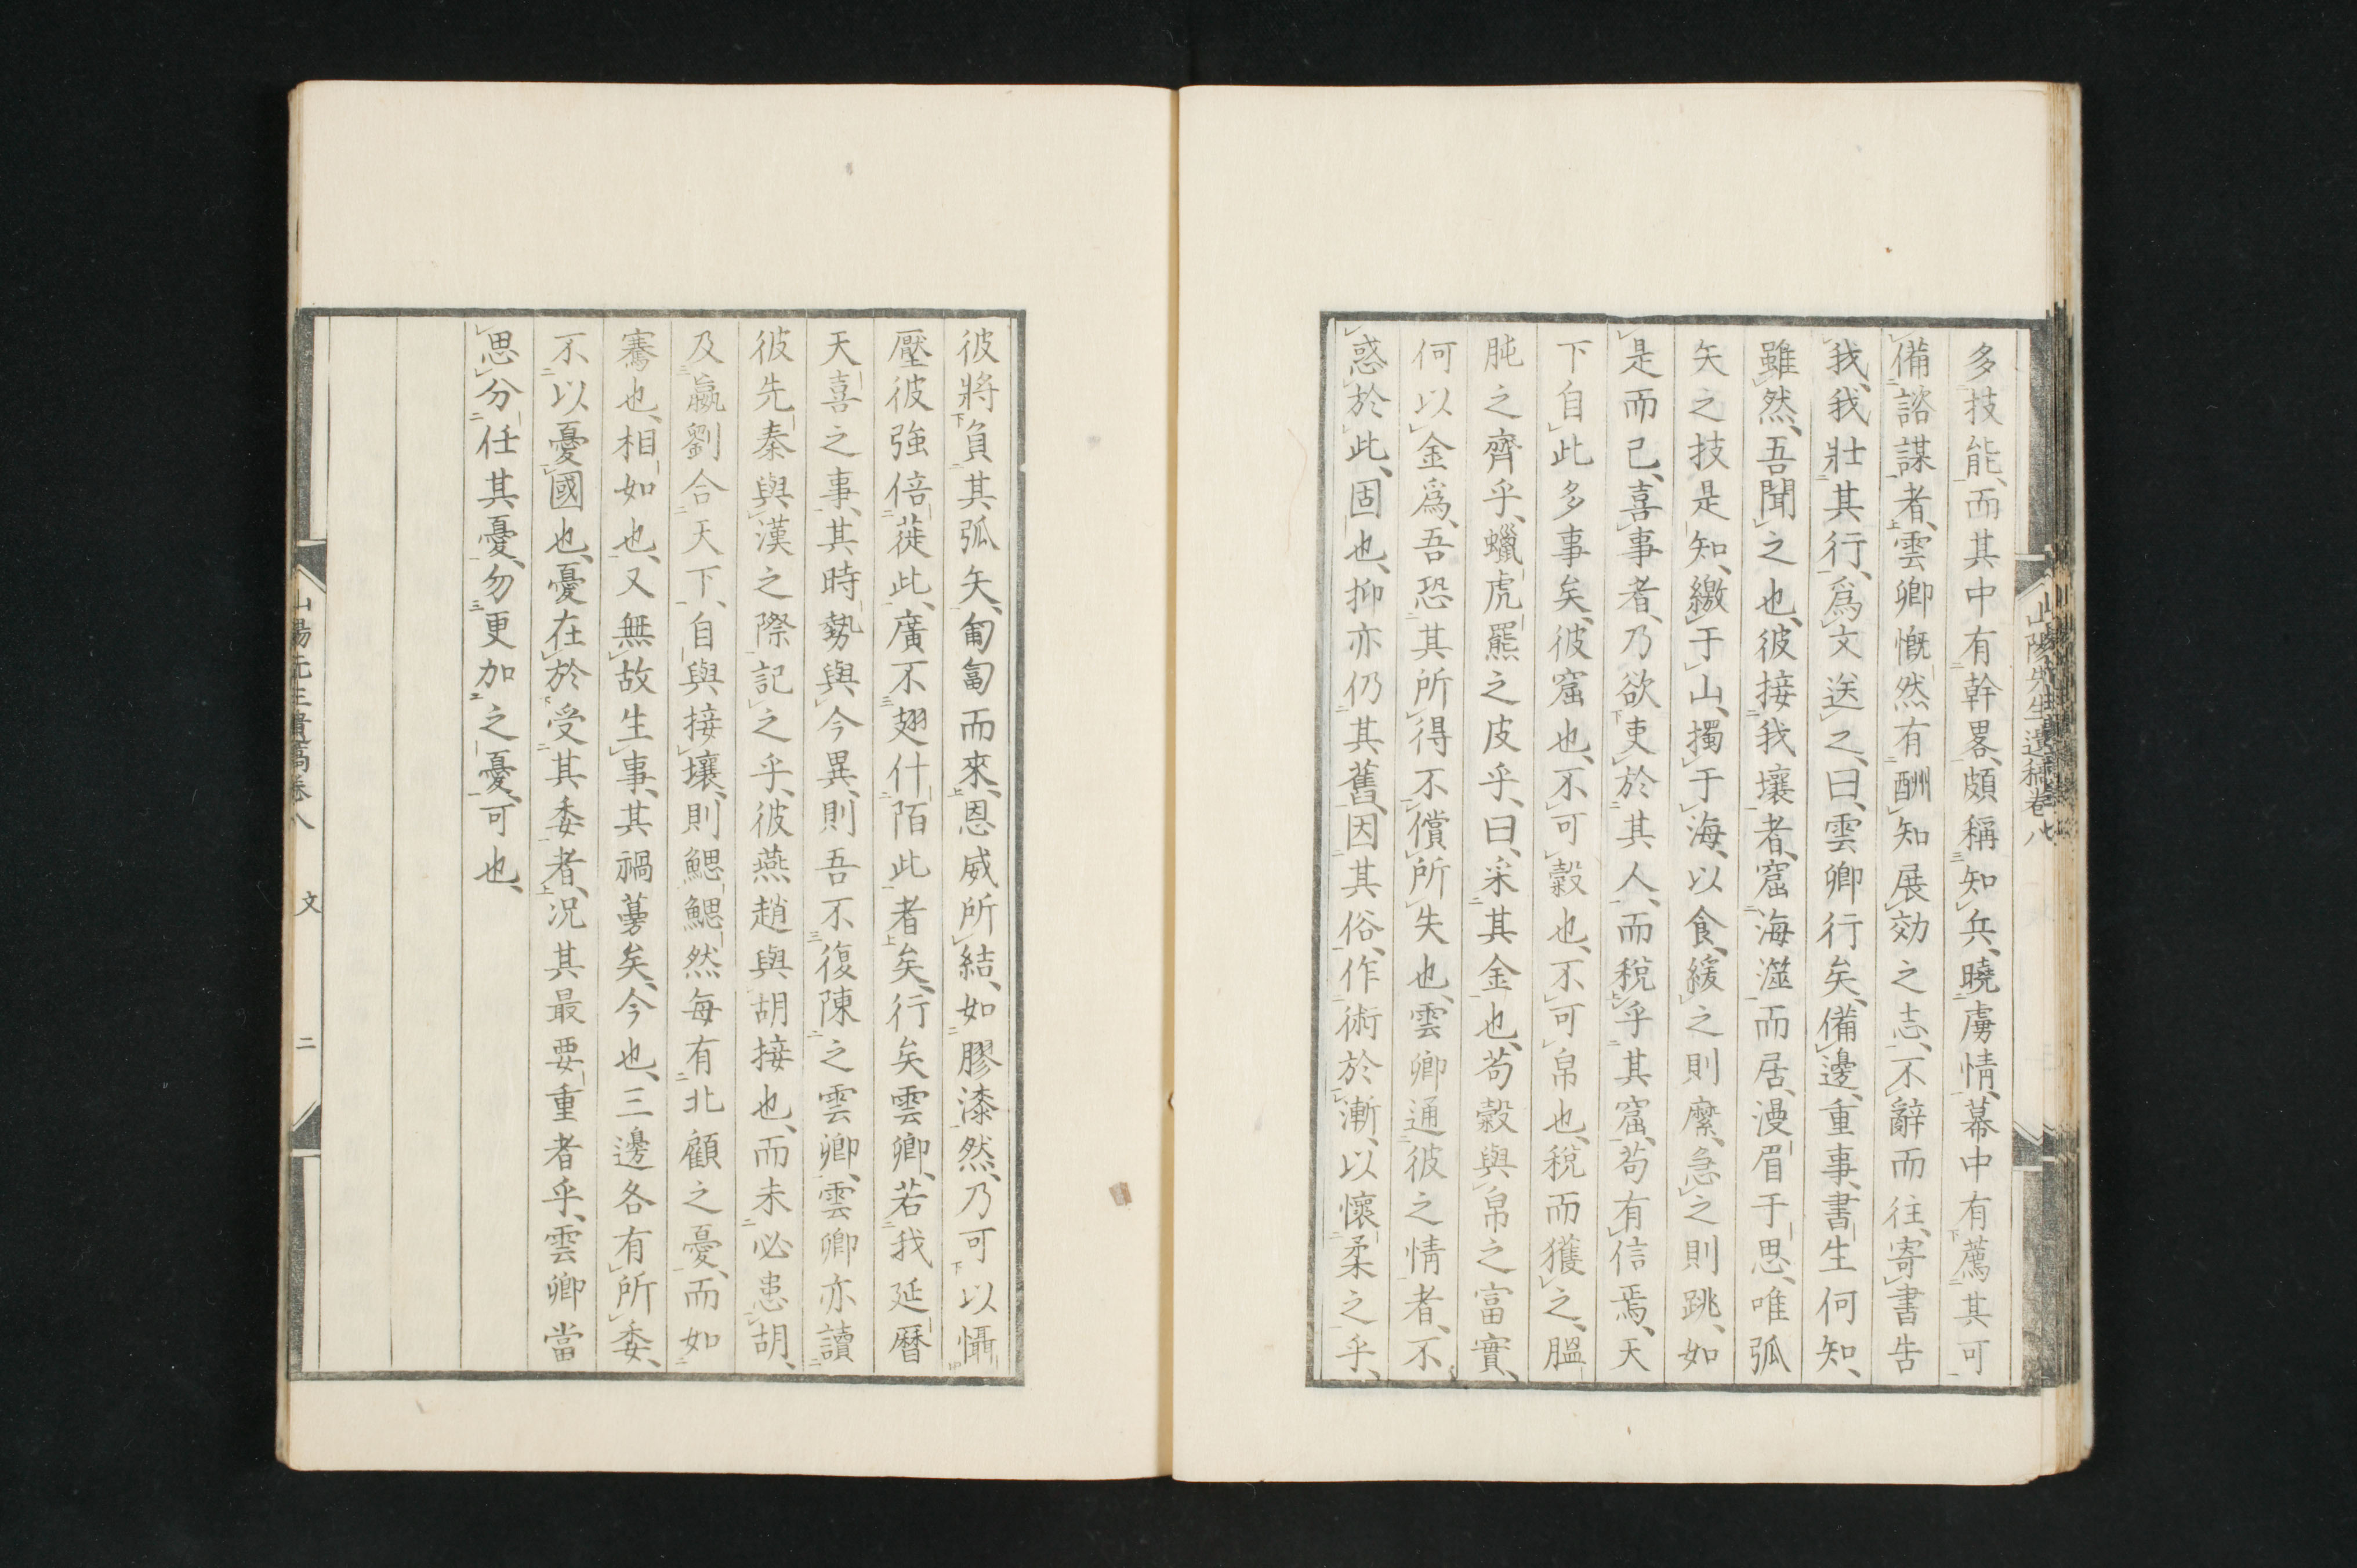 多技能、而其中有幹畧、頗稱知兵、曉虜情、幕中有薦其可
備諮謀者、雲卿慨然有酬知展效之志、不辭而往、寄書告
我、我壯其行、爲文送之、曰、雲卿行矣、備邊重事、書生何知、
雖然、吾聞之也、彼接我壤者、窟海澨而居、漫眉于思、唯弧
矢之技是知、繳于山、擉于海、以食、緩之則縻、急之則跳、如
是而已、喜事者、乃欲吏於其人、而稅乎其窟、苟有信焉、天
下自此多事矣、彼窟也、不可穀也、不可帛也、稅而獲之、膃
肭之齊乎、蠟虎羆之皮乎、曰、采其金也、苟穀與帛之富實、
何以金爲、吾恐其所得不償所失也、雲卿通彼之情者、不
惑於此、固也、抑亦仍其舊、因其俗、作術於漸、以懷柔之乎、
山陽先生遺稿卷八
彼將負其弧矢、匍匐而來、恩威所結、如膠漆然、乃可以懾
壓彼強倍蓰此、廣不翅什陌此者矣、行矣雲卿、若我延曆
天喜之事、其時勢與今異、則吾不復陳之雲卿、雲卿亦讀
彼先秦與漢之際記之乎、彼燕趙與胡接也、而未必患胡、
及嬴劉合天下、自與接壤、則鰓鰓然每有北顧之憂、而如
騫也、相如也、又無故生事、其禍蔓矣、今也、三邊各有所委、
不以憂國也、憂在於受其委者、況其最要重者乎、雲卿當
思分任其憂、勿更加之憂、可也、
山陽先生遺稿卷八 文 二